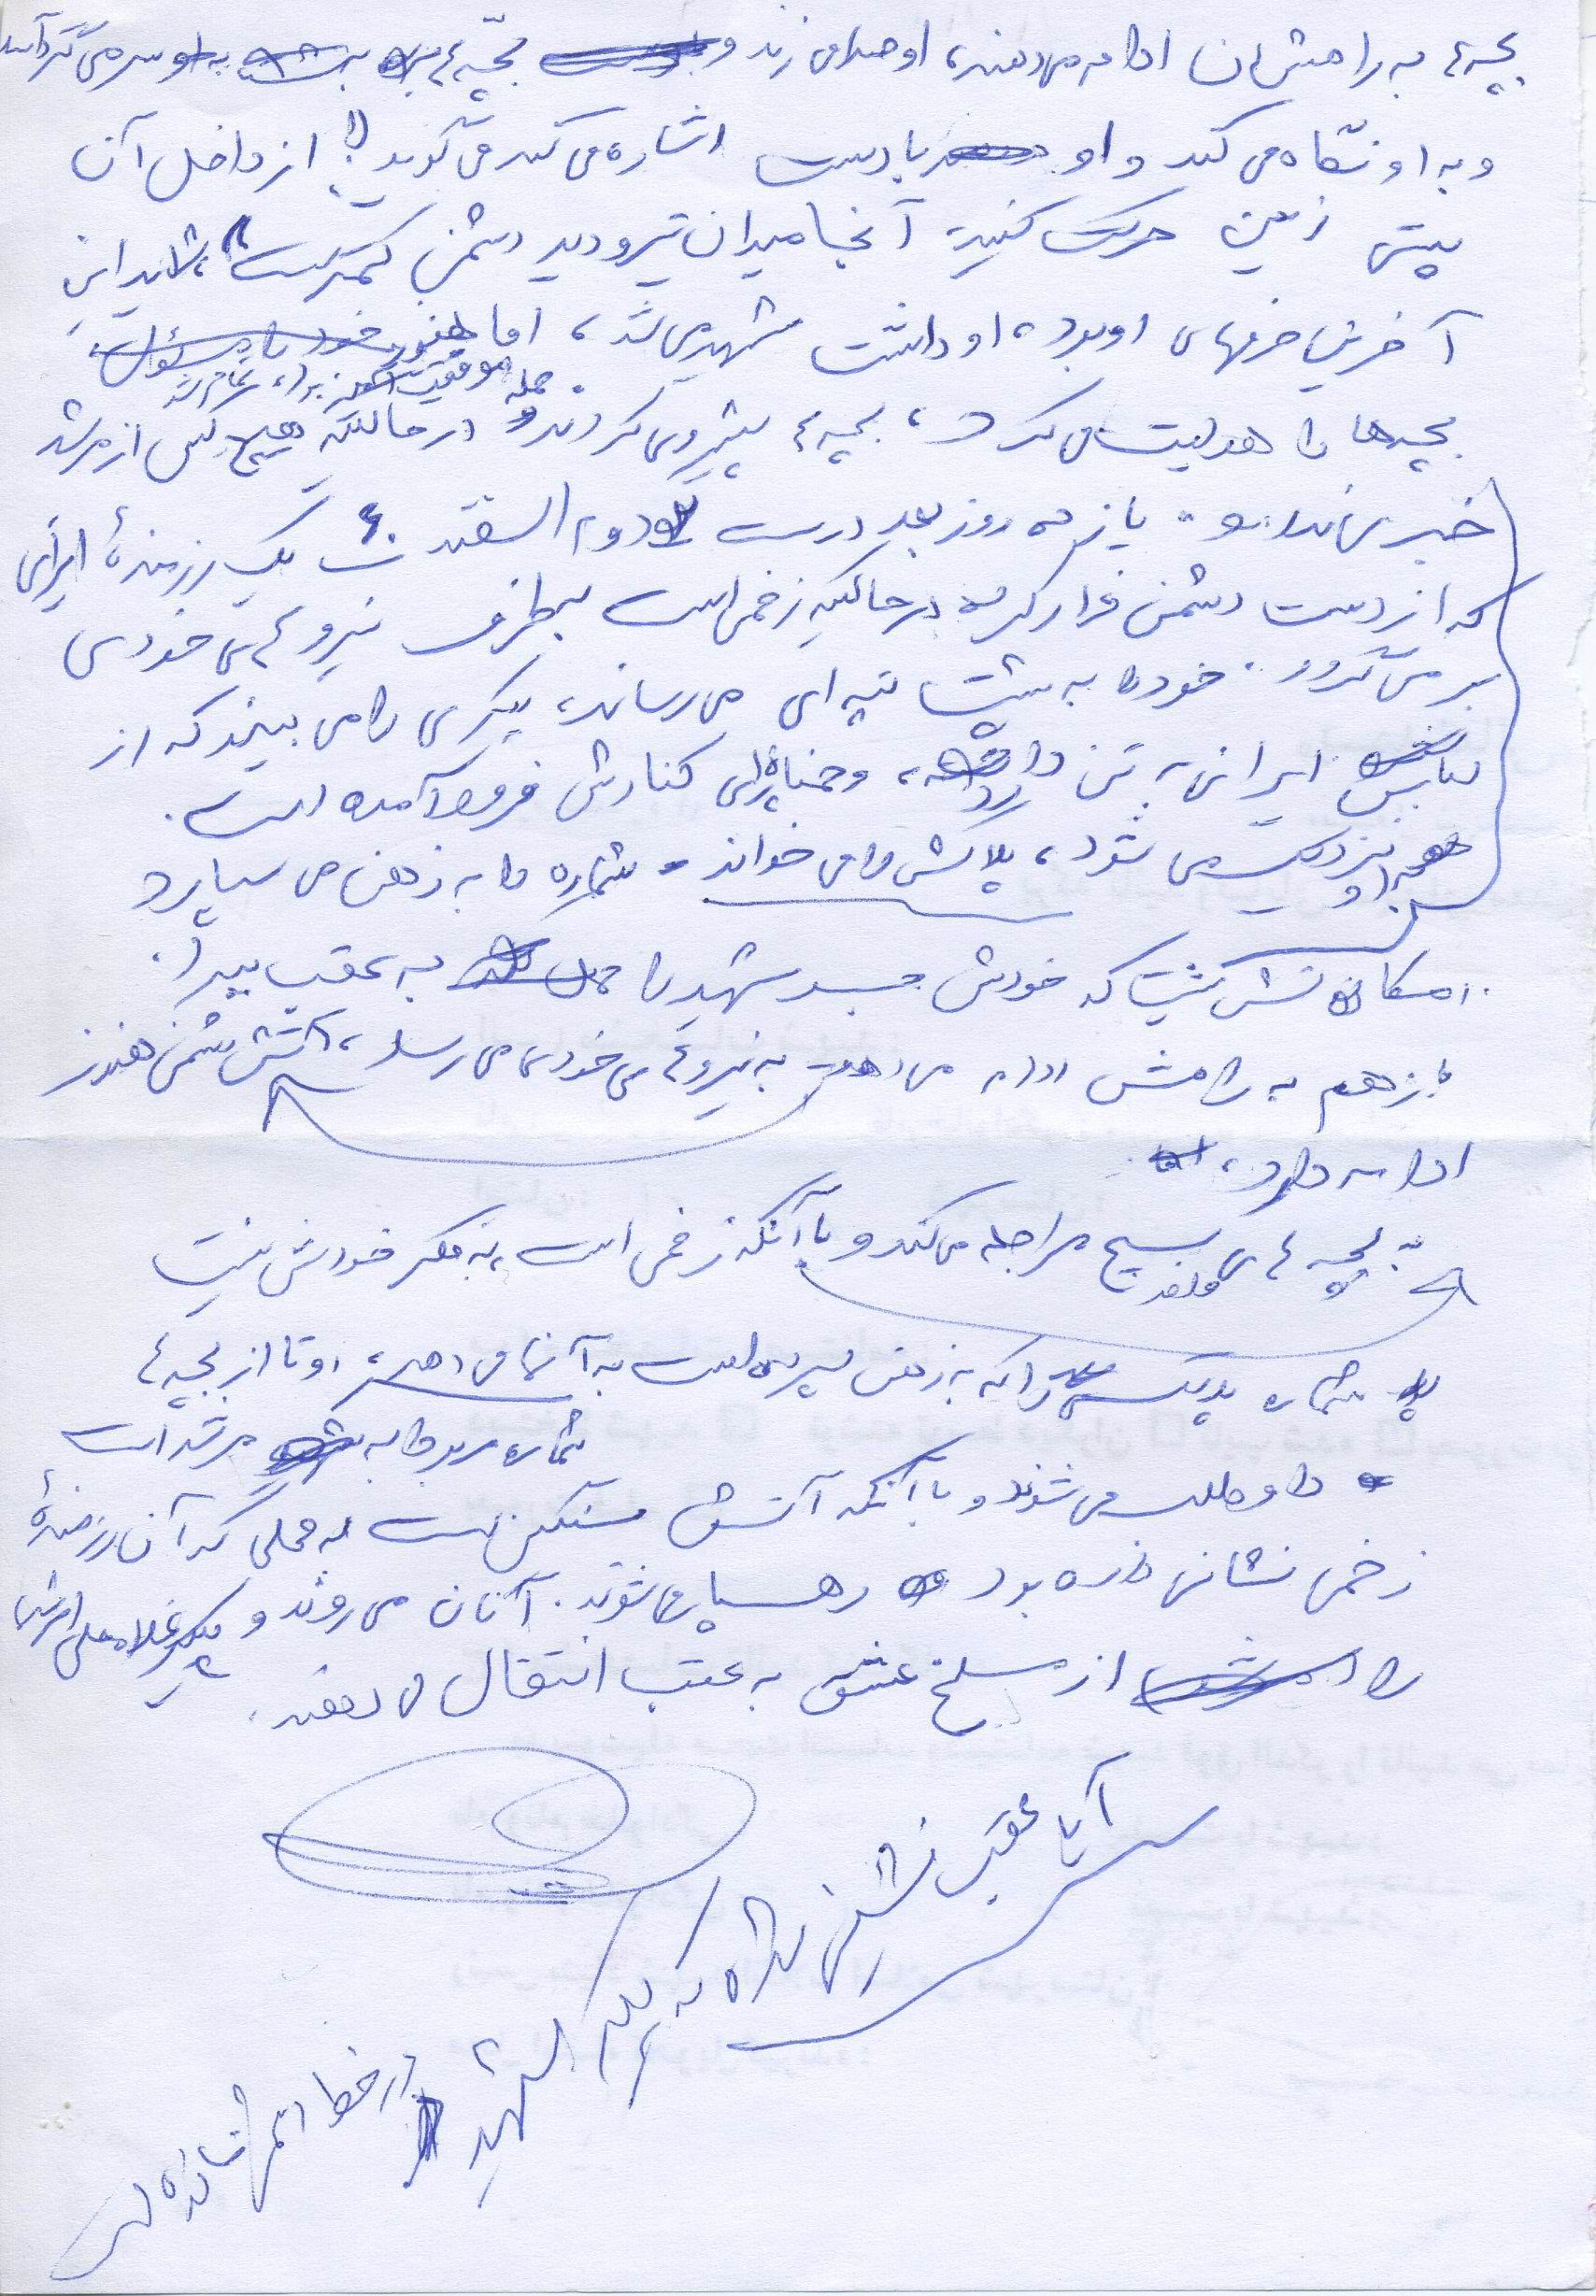 بچه‌ها به راهشان ادامه می‌دهند، او صدا می‌زند و بچه‌ها سر می‌گردانند
و به او نگاه می‌کند و او با دست اشاره می‌کند می‌گوید از داخل آن
پستی زمین حرکت کنید آنجا میدان تیر و دید دشمن کمتر است، شاید این
آخرین حرفهای او بود، او داشت شهید می‌شد، اما هنوز
حمله موفقیت تمام شد
بچه‌ها را هدایت می‌کرد، بچه‌ها پیشروی کردند و در حالیکه هیچ کس از مرشد
خبری نداشت. یازده روز بعد درست دوم اسفند ۶۰ یک رزمندهٔ ایرانی
که از دست دشمن فرار کرده در حالیکه زخمی است بطرف نیروهای خودی
بر می‌گردد. خود را به پشت تپه‌ای می‌رساند، پیکری را می‌بیند که از
لباس ایرانی به تن دارد، و خمپاره‌ای کنارش فرود آمده است.
به او نزدیک می‌شود، پلاکش را می‌خواند، شماره را به ذهن می‌سپارد
امکانش نیست که خودش جسد شهید را به عقب ببرد.
باز هم به راهش ادامه می‌دهد به نیروهای خودی می‌رسد، آتش دشمن هنوز
ادامه دارد،
به بچه‌های بسیج مراجعه می‌کند و با آنکه زخمی است، به فکر خودش نیست
شماره پلاک را که به ذهن سپرده است به آنها می‌دهد، دو تا از بچه‌ها
شماره مربوط به مرشد است
داوطلب می‌شوند و با آنکه آتش سنگین است به محلی که آن رزمندهٔ
زخمی نشانی داده بود رهسپار می‌شوند. آنان می‌روند و پیکر غلامعلی
را از مسلخ عشق به عقب انتقال می‌دهند.
آیا عقب نشینی نکرده که پیکر شهید
در خط مانده است